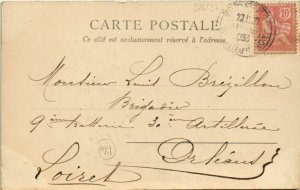 CARTE POSTALE
Ce côté est exclusivement réservé à l'adresse
Monsieur Louis Brézillon
Brigadier
9e batterie 30e Artillerie
Orléans
Loiret
10